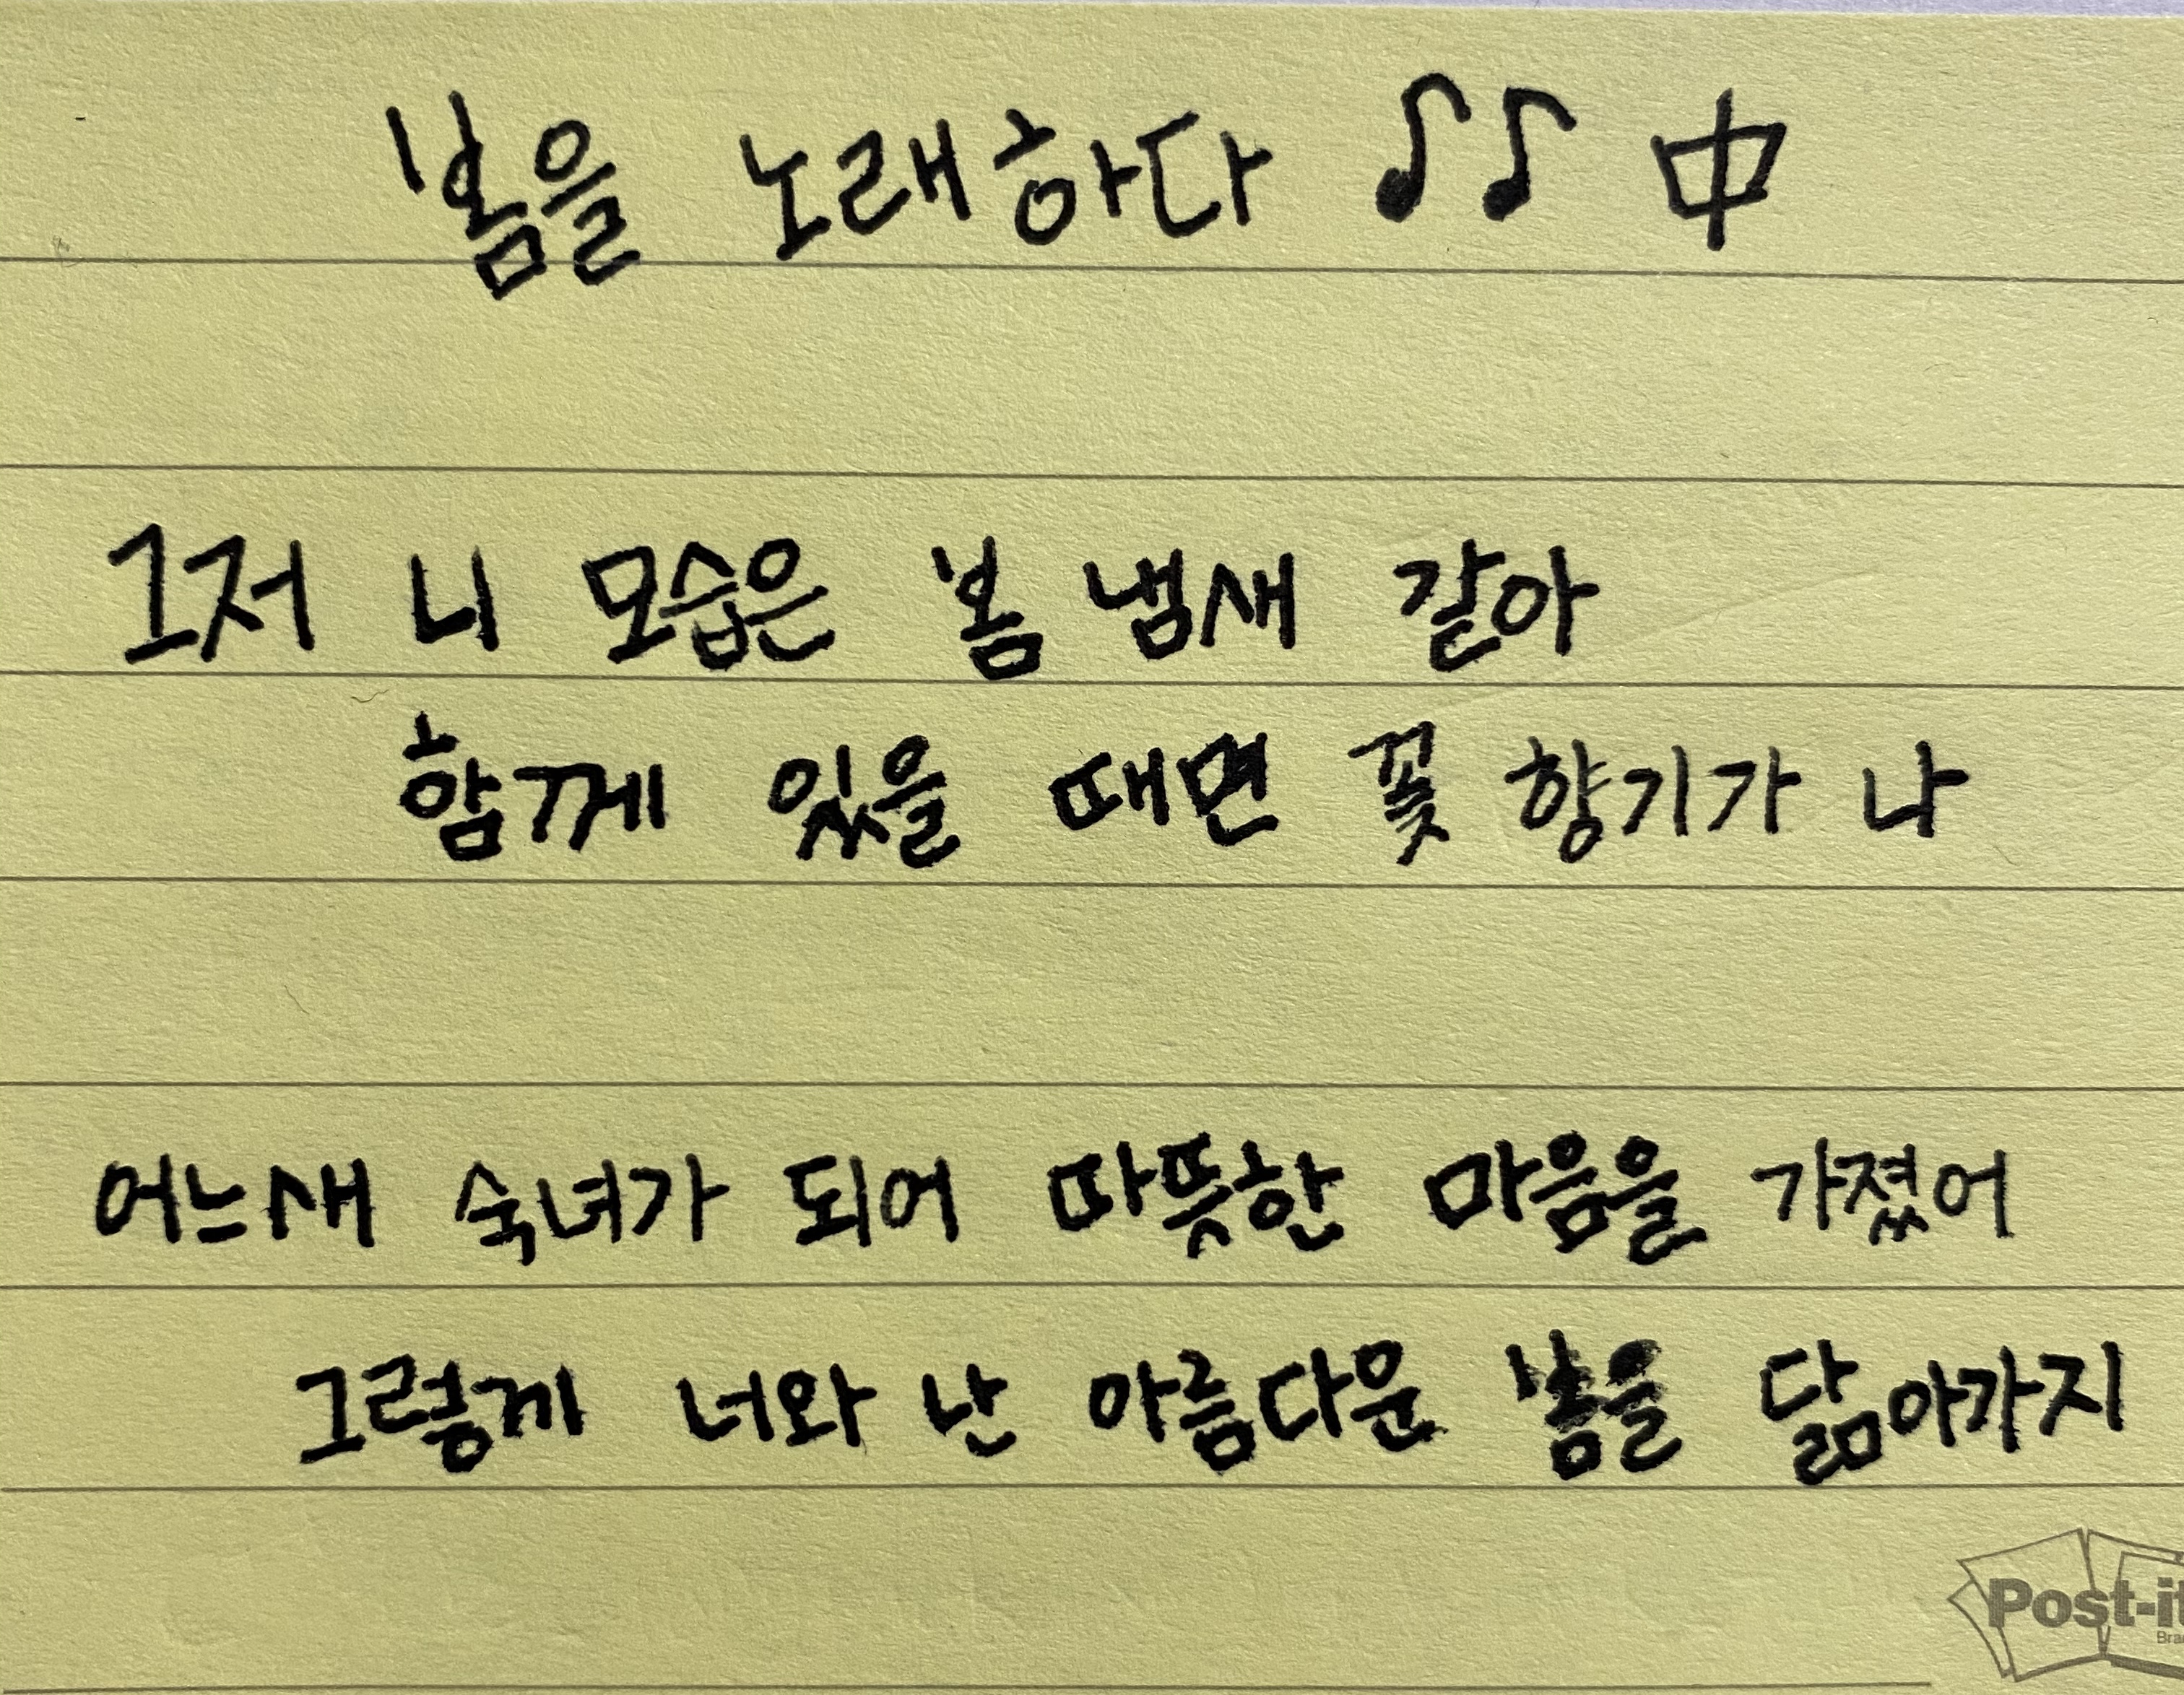 봄을 노래하다 ♪♪ 中
그저 니 모습은 봄 냄새 같아
함께 있을 때면 꽃 향기가 나
어느새 숙녀가 되어 따뜻한 마음을 가졌어
그렇게 너와 난 아름다운 봄을 닮아가지
Post-it
Bra